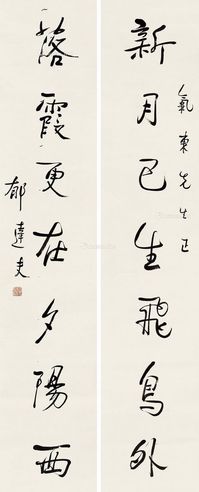 新月已生飛鳥外
東先生正
落霞更在夕陽西
郁達夫